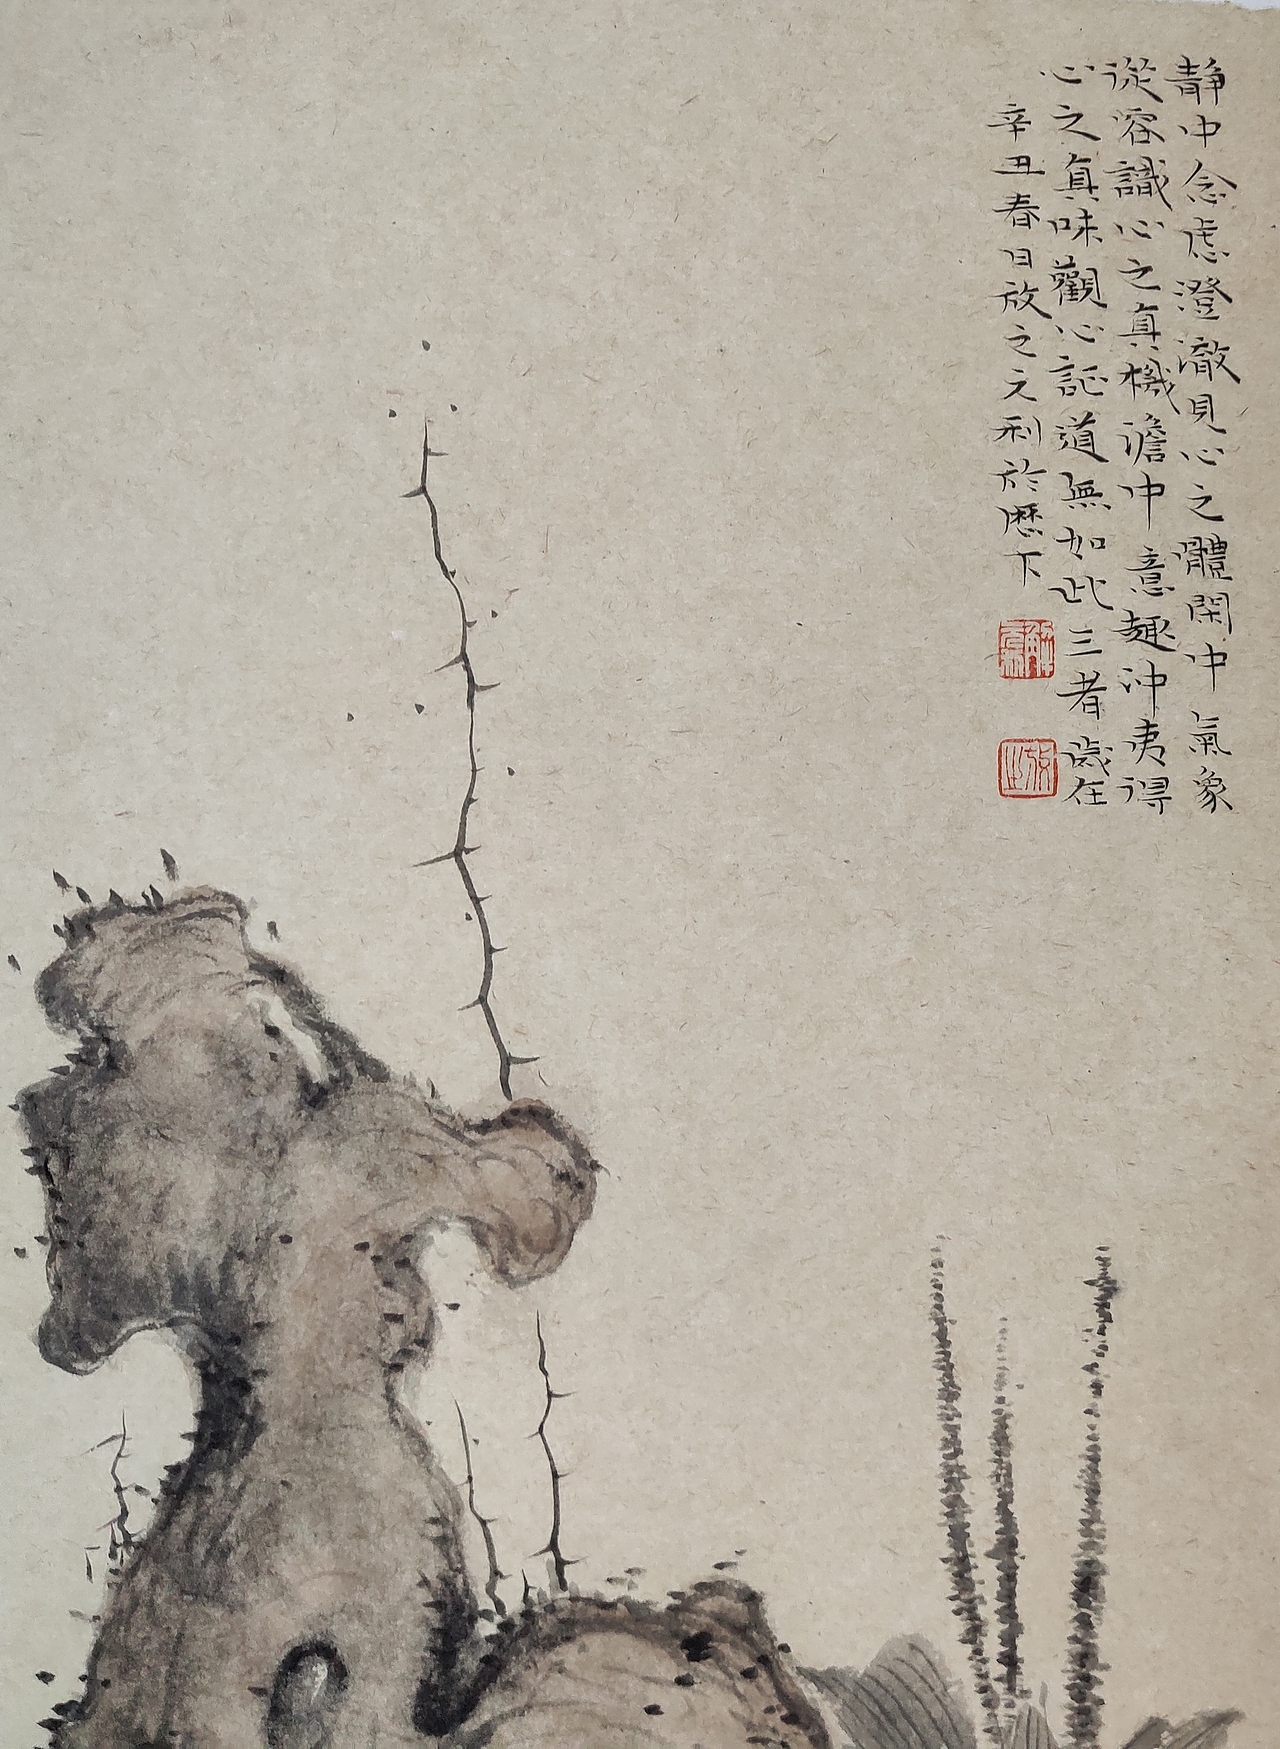 靜中念慮澄澈見心之體閑中氣象
從容識心之真機澹中意趣沖夷得
心之真味觀心証道無如此三者歲在
辛丑春日放之之利於歷下
放之